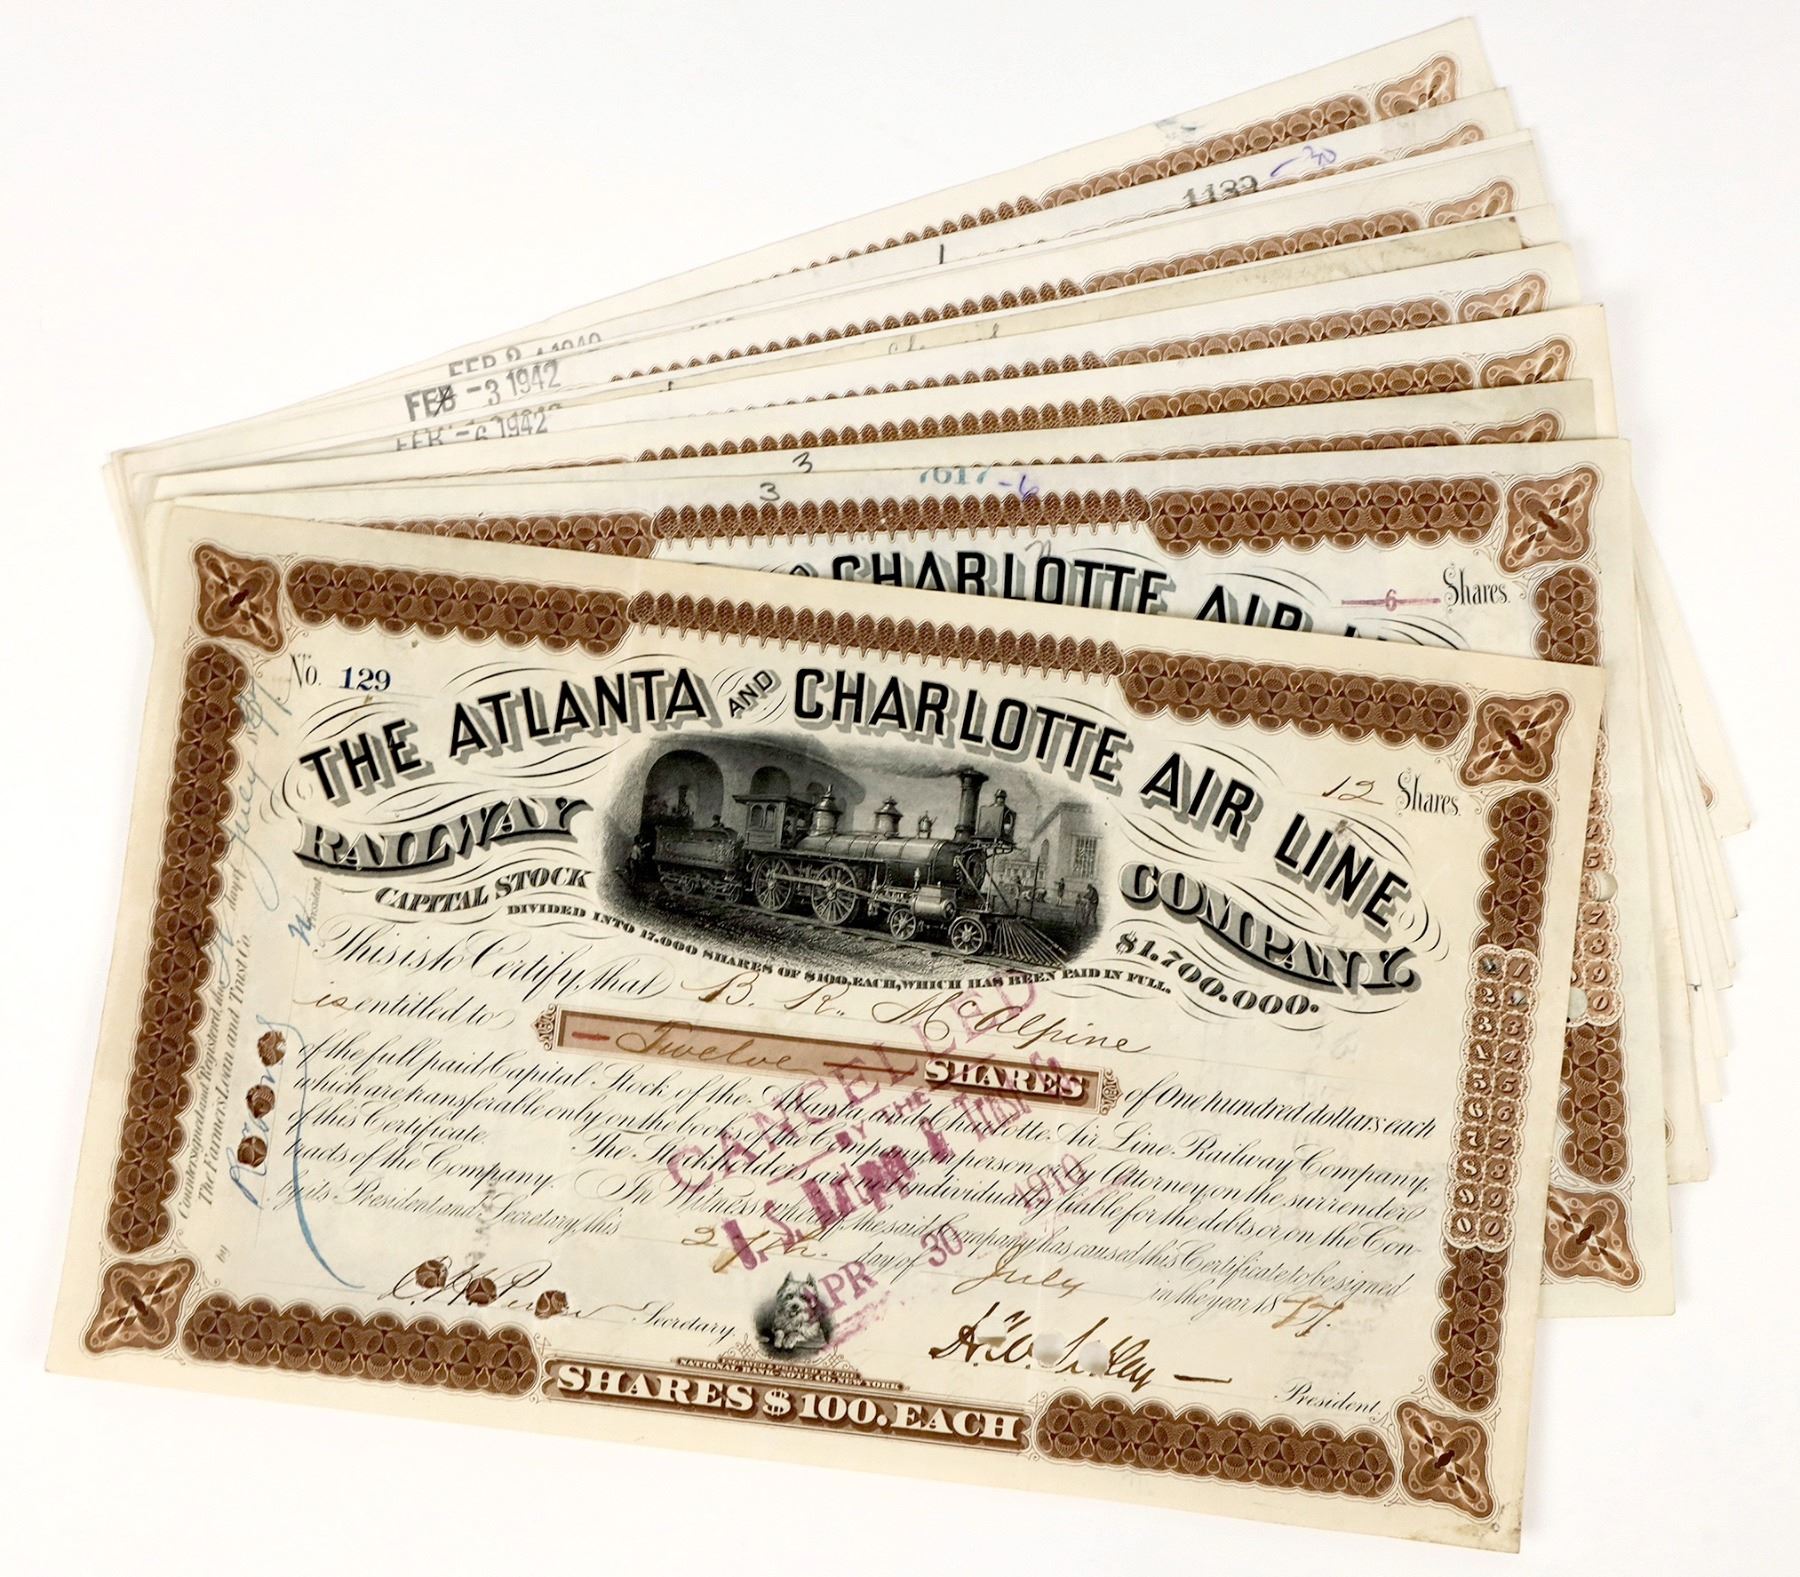 1189 -30
1
FEB 2 1942
FEB -3 1942
FEB -6 1942
3
3
7617 -6
CHARLOTTE AIR
6 Shares.
No. 129
THE ATLANTA AND CHARLOTTE AIR LINE
12 Shares.
RAILWAY COMPANY.
CAPITAL STOCK $1.700.000.
DIVIDED INTO 17.000 SHARES OF $100, EACH, WHICH HAS BEEN PAID IN FULL.
This is to Certify, that B. R. McAlpine
is entitled to Twelve SHARES of One hundred dollars each
of the full paid Capital Stock of the Atlanta and Charlotte Air Line Railway Company,
which are transferable only on the books of the Company in person or by Attorney, on the surrender
of this Certificate. The Stockholders are not individually liable for the debts or on the Con-
tracts of the Company. In Witness whereof, the said Company has caused this Certificate to be signed
by its President and Secretary, this 27th day of July in the year, 1877.
Secretary.
President.
ENGRAVED & PRINTED BY THE
NATIONAL BANK-NOTE CO. NEW YORK
SHARES $100. EACH
Countersigned and Registered, this day of July
The Farmers Loan and Trust Co.
by
President
CANCELED
BY THE
APR 30 1910
1 1
2 2
3 3
4 4
5 5
6 6
7 7
8 8
9 9
0 0